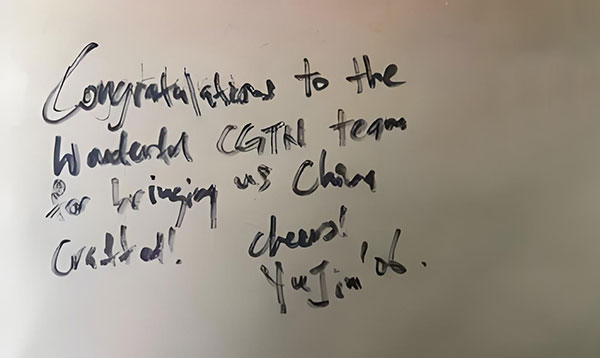 Congratulations to the
Wonderful CGTN team
for bringing us China
Crafted! cheers!
YueJin '06.